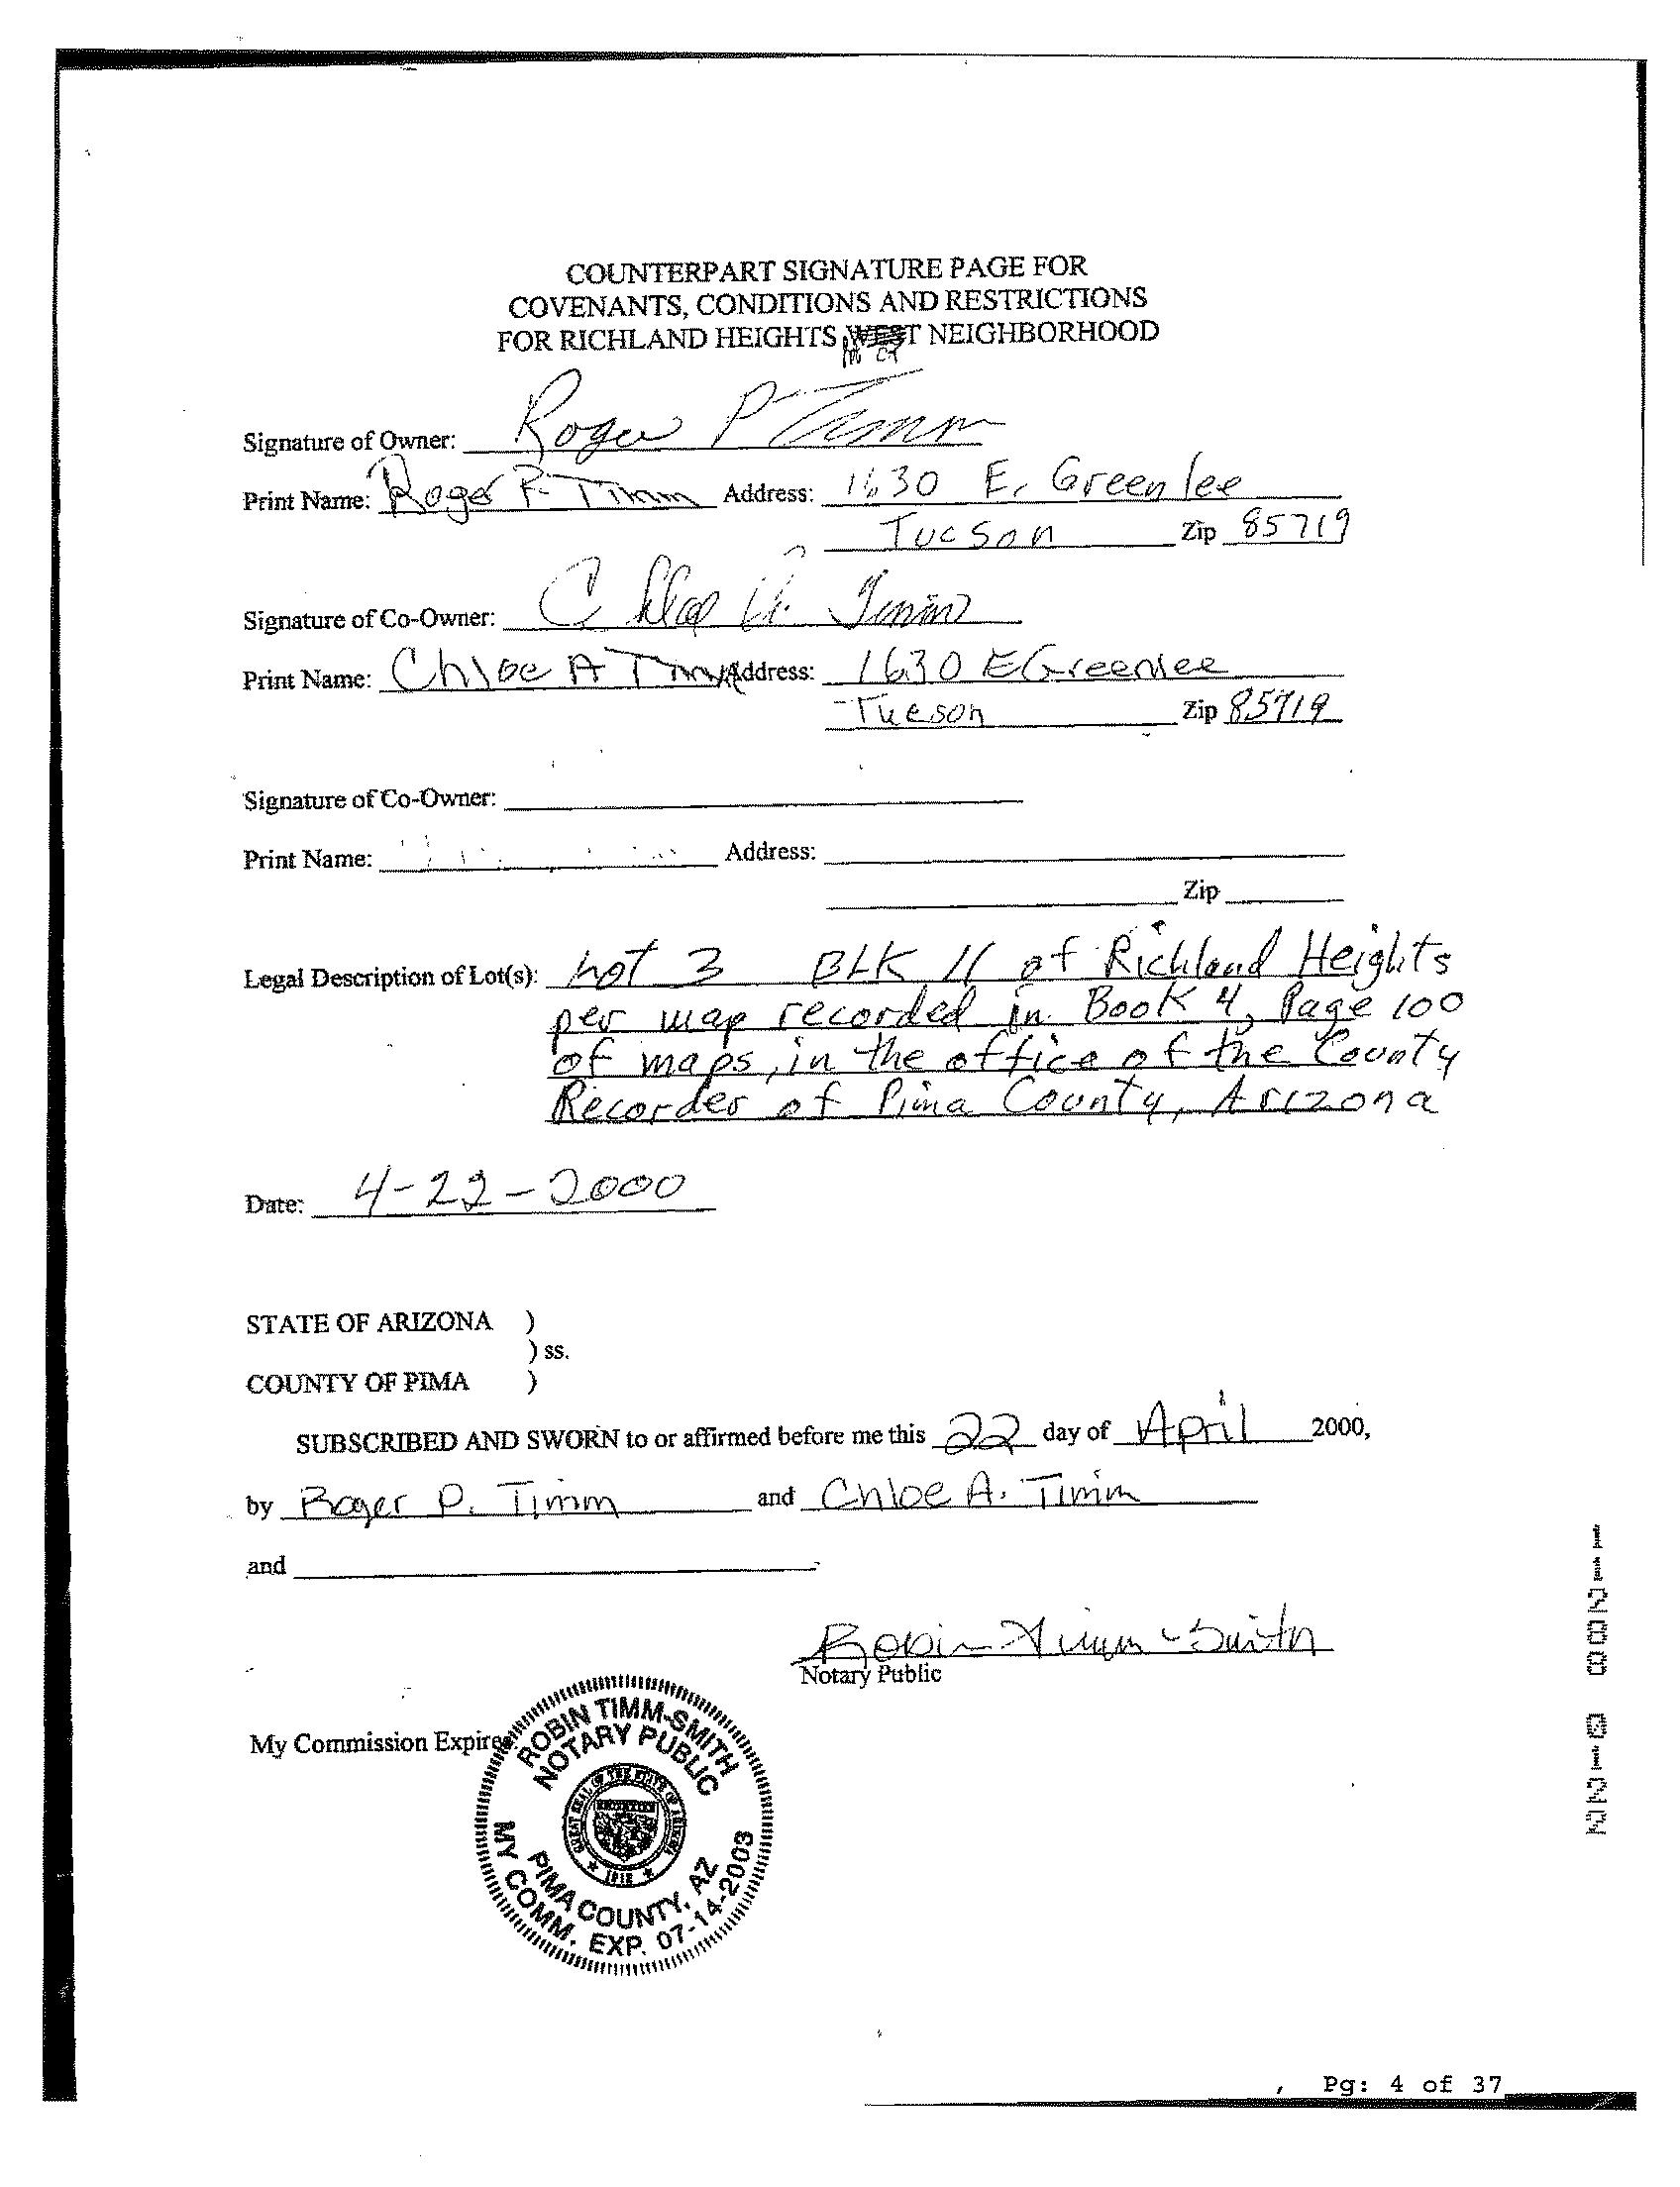 COUNTERPART SIGNATURE PAGE FOR
COVENANTS, CONDITIONS AND RESTRICTIONS
FOR RICHLAND HEIGHTS WEST NEIGHBORHOOD
Signature of Owner: Roger P Timm
Print Name: Roger P. Timm Address: 1630 E. Greenlee
Tucson Zip 85719
Signature of Co-Owner: Chloe A. Timm
Print Name: Chloe A Timm Address: 1630 E Greenlee
Tucson Zip 85719
Signature of Co-Owner:
Print Name: Address:
Zip
Legal Description of Lot(s): Lot 3 BLK 11 of Richland Heights
per map recorded in Book 4, Page 100
of maps, in the office of the County
Recorder of Pima County, Arizona
Date: 4-22-2000
STATE OF ARIZONA )
) ss.
COUNTY OF PIMA )
SUBSCRIBED AND SWORN to or affirmed before me this 22 day of April 2000,
by Roger P. Timm and Chloe A. Timm
and
Robin Timm-Smith
Notary Public
My Commission Expires
ROBIN TIMM-SMITH
NOTARY PUBLIC
GREAT SEAL OF THE STATE OF ARIZONA
1912
PIMA COUNTY, AZ
MY COMM. EXP. 07-14-2003
11288 0122
Pg: 4 of 37